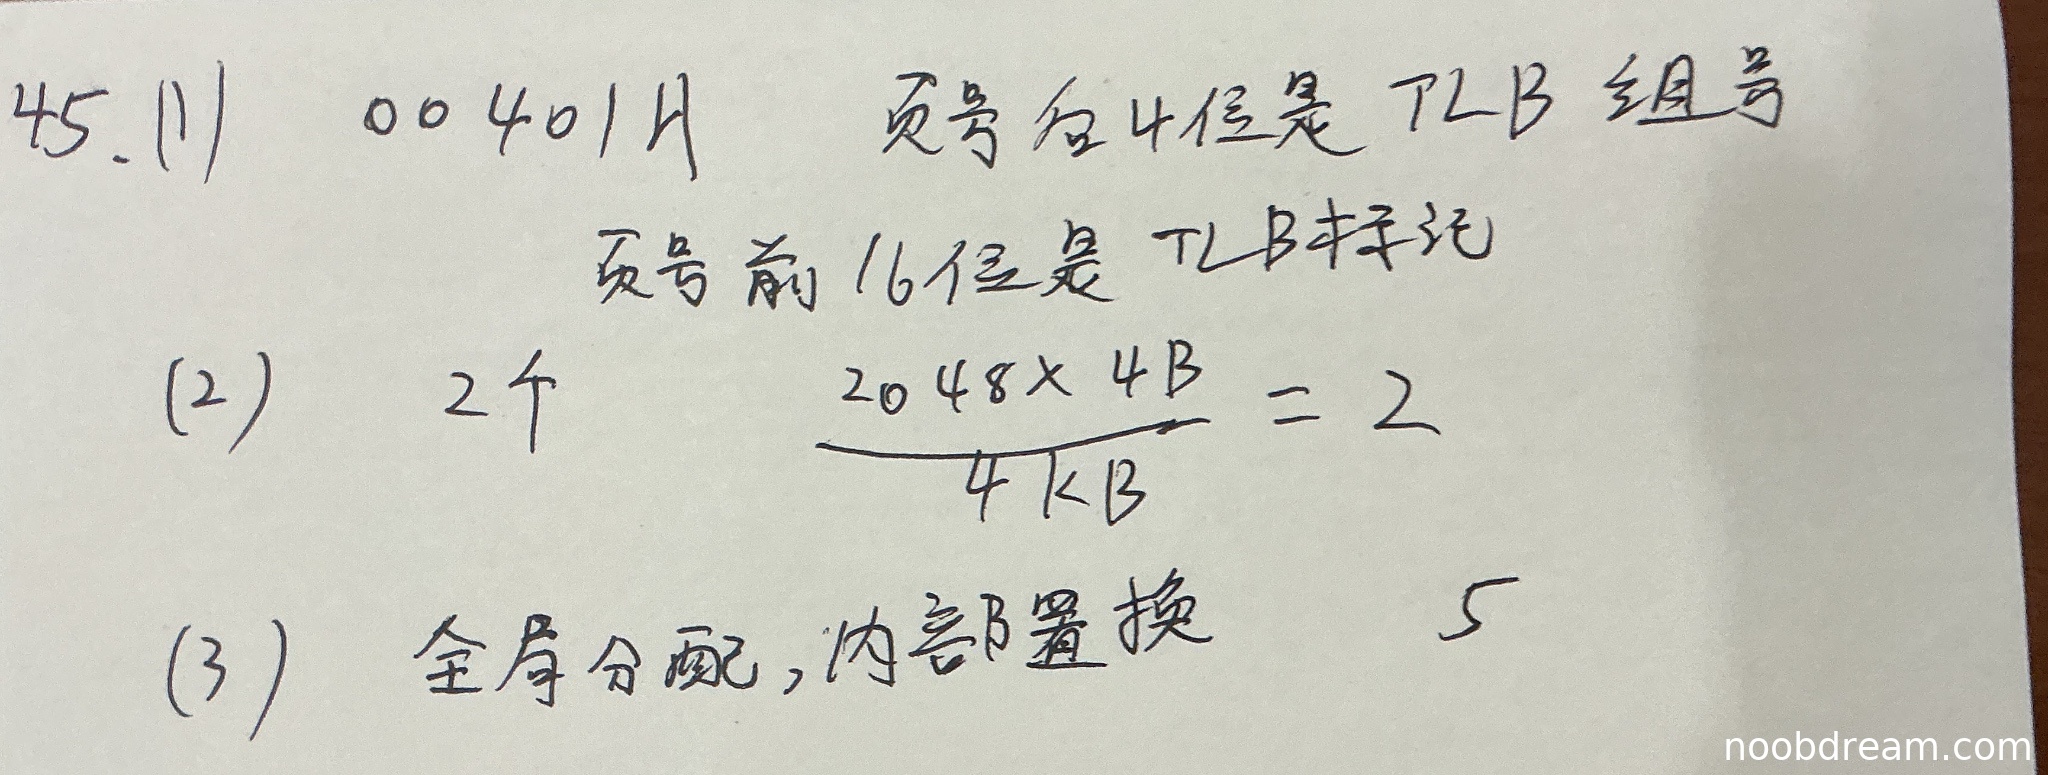 45.(1) 00401H 页号后4位是TLB组号
页号前16位是TLB标记
(2) 2个 2048×4B / 4KB = 2
(3) 全局分配,内部置换 5
noobdream.com